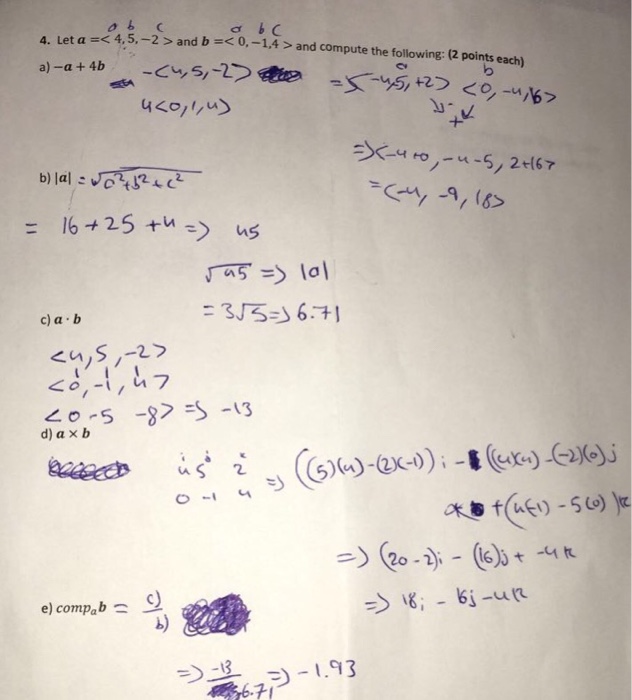 a b c a b c
4. Let a =< 4, 5, −2 > and b =< 0, −1,4 > and compute the following: (2 points each)
a) −a + 4b
-<4,5,-2>
4<0,1,4)
a b
=><-4,5,+2> <0,-4,16>
+
=><-4+0,-4-5, 2+16>
=<-4, -9, 18>
b) |a| = √a²+b²+c²
= 16+25+4 => 45
√45 => |a|
= 3√5 => 6.71
c) a · b
<4,5,-2>
<0,-1,4>
<0-5 -8> => -13
d) a x b
i j k
4 5 2
0 -1 4
=> ((5)(4)-(2)(-1)) i - ((4)(4)-(-2)(0)j
+(4(-1) - 5(0) )k
=> (20-2)i - (16)j + -4k
=> 18i - 16j -4k
e) compₐb = c) / b)
=> -13 / 6.71 => -1.93